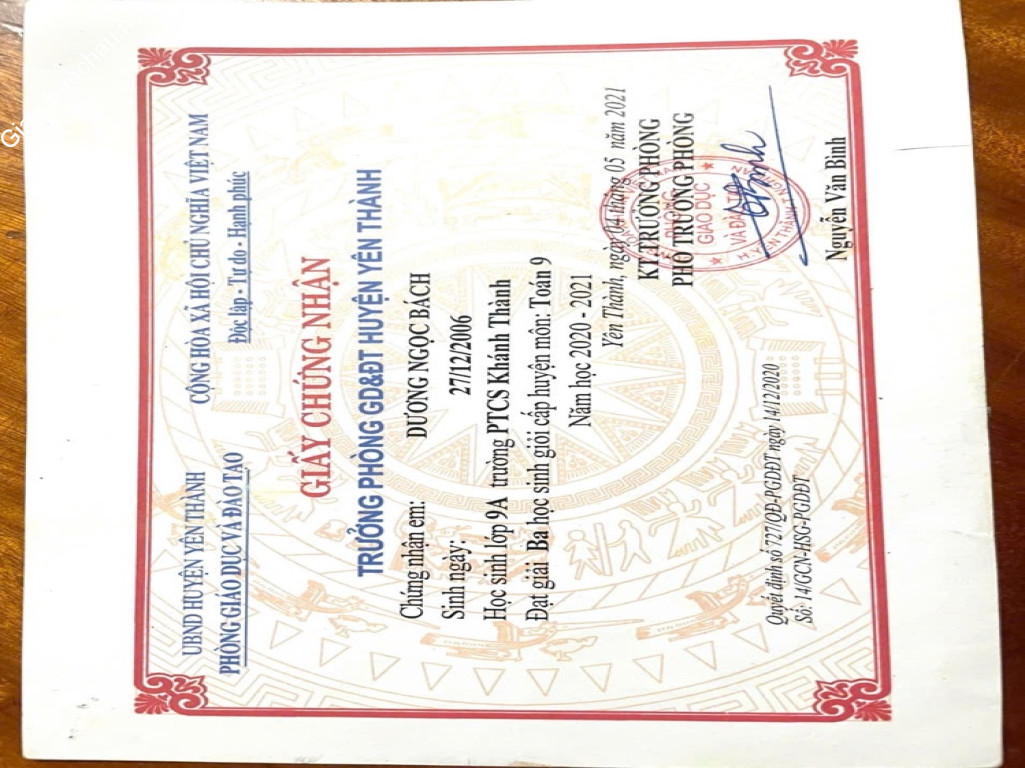 UBND HUYỆN YÊN THÀNH
PHÒNG GIÁO DỤC VÀ ĐÀO TẠO
CỘNG HÒA XÃ HỘI CHỦ NGHĨA VIỆT NAM
Độc lập - Tự do - Hạnh phúc
GIẤY CHỨNG NHẬN
TRƯỞNG PHÒNG GD&ĐT HUYỆN YÊN THÀNH
Chứng nhận em: DƯƠNG NGỌC BÁCH
Sinh ngày: 27/12/2006
Học sinh lớp 9A trường PTCS Khánh Thành
Đạt giải Ba học sinh giỏi cấp huyện môn: Toán 9
Năm học 2020 - 2021
Yên Thành, ngày 04 tháng 05 năm 2021
KT.TRƯỞNG PHÒNG
PHÓ TRƯỞNG PHÒNG
PHÒNG
GIÁO DỤC
VÀ ĐÀO TẠO
H.YÊN THÀNH
Nguyễn Văn Bình
Quyết định số 727/QĐ-PGDĐT ngày 14/12/2020
Số: 14/GCN-HSG-PGDĐT